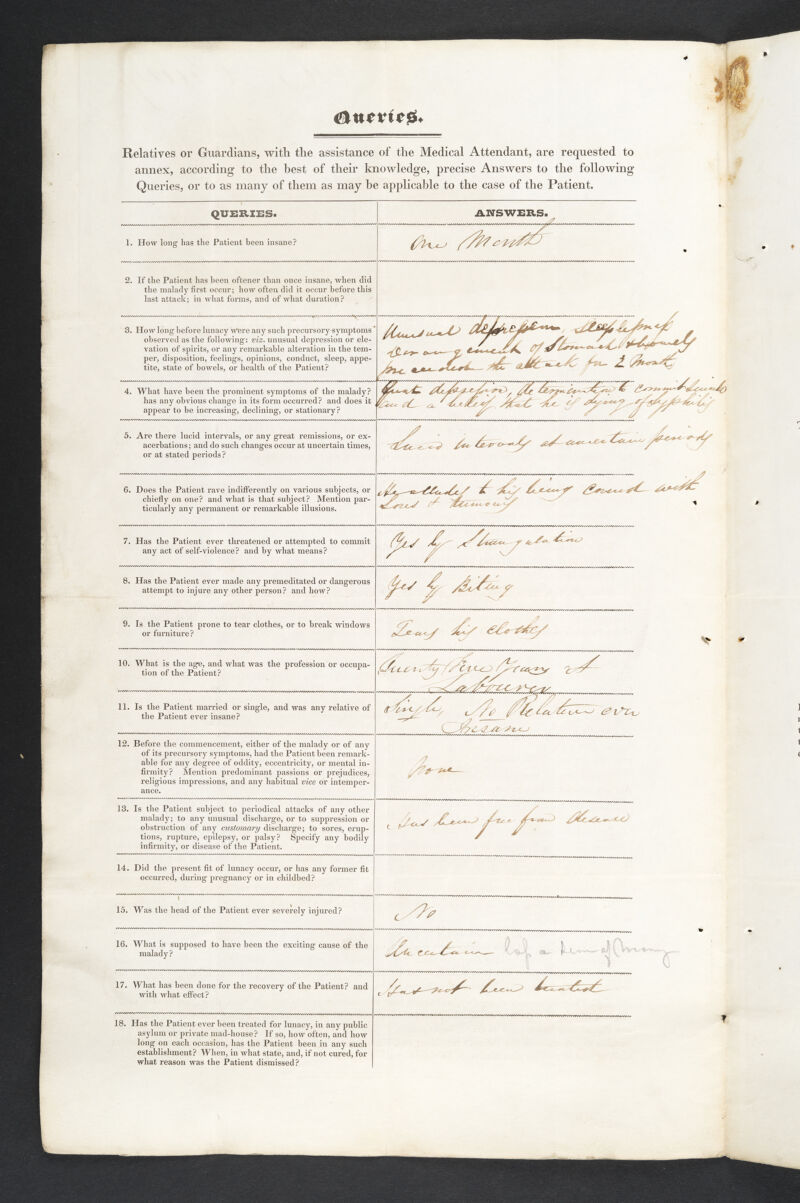 Queries.
Relatives or Guardians, with the assistance of the Medical Attendant, are requested to
annex, according to the best of their knowledge, precise Answers to the following
Queries, or to as many of them as may be applicable to the case of the Patient.
QUERIES.
ANSWERS.
1. How long has the Patient been insane?
One Month
2. If the Patient has been oftener than once insane, when did
the malady first occur; how often did it occur before this
last attack; in what forms, and of what duration?
3. How long before lunacy were any such precursory symptoms
observed as the following: viz. unusual depression or ele-
vation of spirits, or any remarkable alteration in the tem-
per, disposition, feelings, opinions, conduct, sleep, appe-
tite, state of bowels, or health of the Patient?
Unusual depression, sleeplessness
Derangement of Stomach & bowels
preceeded the attack for 2 Months
4. What have been the prominent symptoms of the malady?
has any obvious change in its form occurred? and does it
appear to be increasing, declining, or stationary?
Great depression, determination to commit Suicide
and a belief that he is dying of syphilis
5. Are there lucid intervals, or any great remissions, or ex-
acerbations; and do such changes occur at uncertain times,
or at stated periods?
Lucid intervals at uncertain periods
6. Does the Patient rave indifferently on various subjects, or
chiefly on one? and what is that subject? Mention par-
ticularly any permanent or remarkable illusions.
He alludes to his being covered with
Sores & tumours
7. Has the Patient ever threatened or attempted to commit
any act of self-violence? and by what means?
Yes by Strangulation
8. Has the Patient ever made any premeditated or dangerous
attempt to injure any other person? and how?
Yes by Biting
9. Is the Patient prone to tear clothes, or to break windows
or furniture?
Tears his clothes
10. What is the age, and what was the profession or occupa-
tion of the Patient?
Twenty five Years A
Labourer
11. Is the Patient married or single, and was any relative of
the Patient ever insane?
Single, No Relative ever
Insane
12. Before the commencement, either of the malady or of any
of its precursory symptoms, had the Patient been remark-
able for any degree of oddity, eccentricity, or mental in-
firmity? Mention predominant passions or prejudices,
religious impressions, and any habitual vice or intemper-
ance.
None
13. Is the Patient subject to periodical attacks of any other
malady; to any unusual discharge, or to suppression or
obstruction of any customary discharge; to sores, erup-
tions, rupture, epilepsy, or palsy? Specify any bodily
infirmity, or disease of the Patient.
Has been free from disease
14. Did the present fit of lunacy occur, or has any former fit
occurred, during pregnancy or in childbed?
15. Was the head of the Patient ever severely injured?
No
16. What is supposed to have been the exciting cause of the
malady?
Uncertain loss a sum of money
17. What has been done for the recovery of the Patient? and
with what effect?
Has not been treated
18. Has the Patient ever been treated for lunacy, in any public
asylum or private mad-house? If so, how often, and how
long on each occasion, has the Patient been in any such
establishment? When, in what state, and, if not cured, for
what reason was the Patient dismissed?